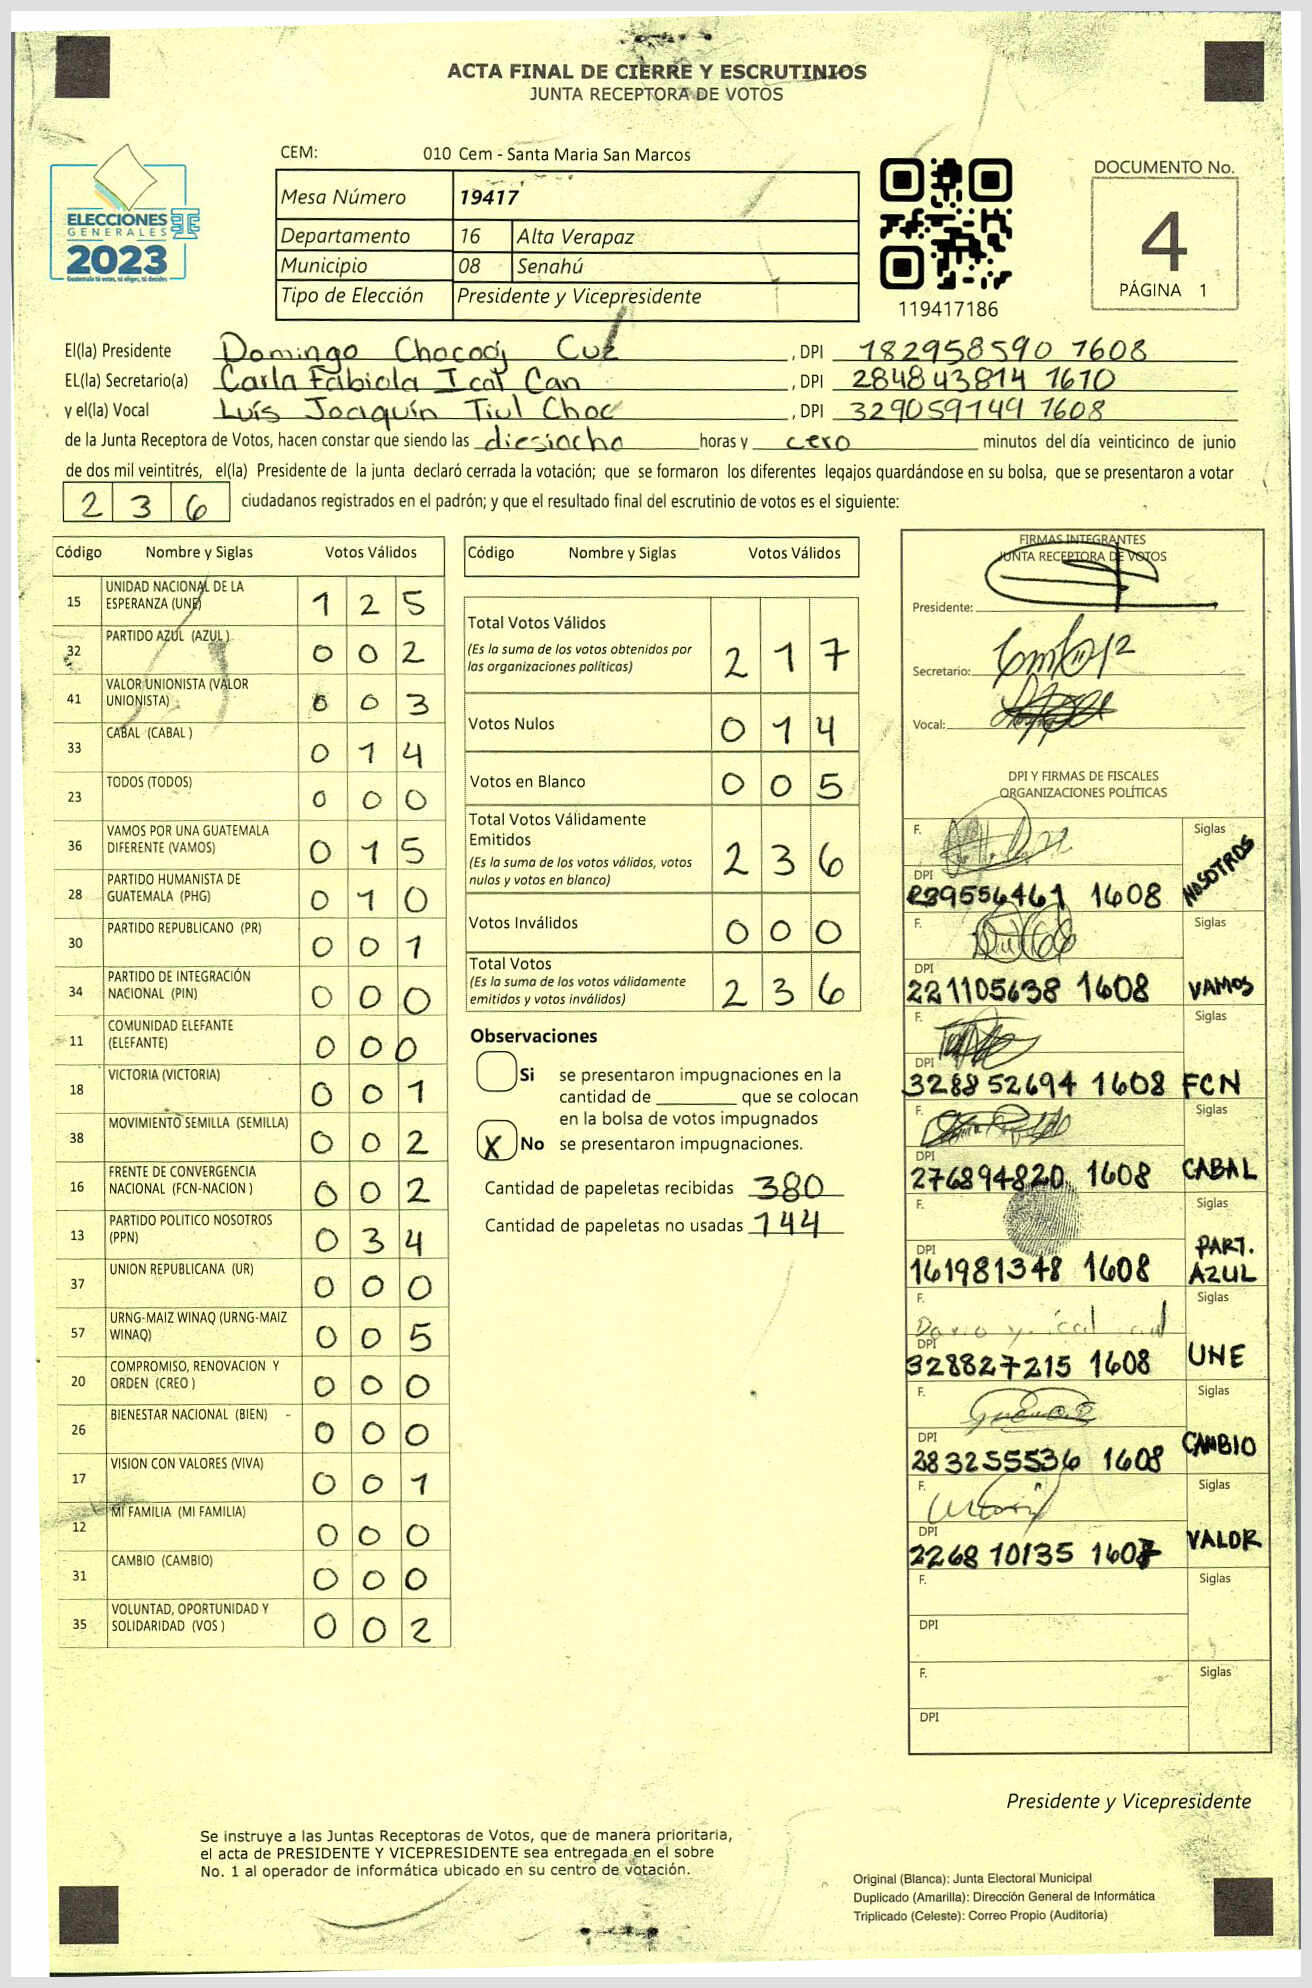 ACTA FINAL DE CIERRE Y ESCRUTINIOS
JUNTA RECEPTORA DE VOTOS
ELECCIONES
GENERALES
2023
Guatemala tú votas, tú eliges, tú decides
CEM: 010 Cem - Santa Maria San Marcos
Mesa Número 19417
Departamento 16 Alta Verapaz
Municipio 08 Senahú
Tipo de Elección Presidente y Vicepresidente
119417186
DOCUMENTO No.
4
PÁGINA 1
El(la) Presidente Domingo Chocooj Cuz , DPI 182958590 1608
EL(la) Secretario(a) Carla Fabiola Ical Can , DPI 284843814 1610
y el(la) Vocal Luís Joaquín Tiul Choc , DPI 329059149 1608
de la Junta Receptora de Votos, hacen constar que siendo las diesiocho horas y cero minutos del día veinticinco de junio
de dos mil veintitrés, el(la) Presidente de la junta declaró cerrada la votación; que se formaron los diferentes legajos quardándose en su bolsa, que se presentaron a votar
2 3 6 ciudadanos registrados en el padrón; y que el resultado final del escrutinio de votos es el siguiente:
Código Nombre y Siglas Votos Válidos
15 UNIDAD NACIONAL DE LA ESPERANZA (UNE) 1 2 5
32 PARTIDO AZUL (AZUL ) 0 0 2
41 VALOR UNIONISTA (VALOR UNIONISTA) 0 0 3
33 CABAL (CABAL ) 0 1 4
23 TODOS (TODOS) 0 0 0
36 VAMOS POR UNA GUATEMALA DIFERENTE (VAMOS) 0 1 5
28 PARTIDO HUMANISTA DE GUATEMALA (PHG) 0 1 0
30 PARTIDO REPUBLICANO (PR) 0 0 1
34 PARTIDO DE INTEGRACIÓN NACIONAL (PIN) 0 0 0
11 COMUNIDAD ELEFANTE (ELEFANTE) 0 0 0
18 VICTORIA (VICTORIA) 0 0 1
38 MOVIMIENTO SEMILLA (SEMILLA) 0 0 2
16 FRENTE DE CONVERGENCIA NACIONAL (FCN-NACION ) 0 0 2
13 PARTIDO POLITICO NOSOTROS (PPN) 0 3 4
37 UNION REPUBLICANA (UR) 0 0 0
57 URNG-MAIZ WINAQ (URNG-MAIZ WINAQ) 0 0 5
20 COMPROMISO, RENOVACION Y ORDEN (CREO ) 0 0 0
26 BIENESTAR NACIONAL (BIEN) 0 0 0
17 VISION CON VALORES (VIVA) 0 0 1
12 MI FAMILIA (MI FAMILIA) 0 0 0
31 CAMBIO (CAMBIO) 0 0 0
35 VOLUNTAD, OPORTUNIDAD Y SOLIDARIDAD (VOS ) 0 0 2
Código Nombre y Siglas Votos Válidos
Total Votos Válidos 2 1 7
(Es la suma de los votos obtenidos por
las organizaciones políticas)
Votos Nulos 0 1 4
Votos en Blanco 0 0 5
Total Votos Válidamente
Emitidos 2 3 6
(Es la suma de los votos válidos, votos
nulos y votos en blanco)
Votos Inválidos 0 0 0
Total Votos 2 3 6
(Es la suma de los votos válidamente
emitidos y votos inválidos)
Observaciones
Si se presentaron impugnaciones en la
cantidad de ________ que se colocan
en la bolsa de votos impugnados
X No se presentaron impugnaciones.
Cantidad de papeletas recibidas 380
Cantidad de papeletas no usadas 144
FIRMAS INTEGRANTES
JUNTA RECEPTORA DE VOTOS
Presidente:
Secretario:
Vocal:
DPI Y FIRMAS DE FISCALES
ORGANIZACIONES POLÍTICAS
F. Siglas
DPI 239556461 1608 NOSOTROS
F. Siglas
DPI 221105638 1608 VAMOS
F. Siglas
DPI 328852694 1608 FCN
F. Siglas
DPI 276894820 1608 CABAL
F. Siglas
DPI 161981348 1608 PART. AZUL
F. Siglas
DPI 328827215 1608 UNE
F. Siglas
DPI 283255536 1608 CAMBIO
F. Siglas
DPI 226810135 1607 VALOR
F. Siglas
DPI
F. Siglas
DPI
Presidente y Vicepresidente
Se instruye a las Juntas Receptoras de Votos, que de manera prioritaria,
el acta de PRESIDENTE Y VICEPRESIDENTE sea entregada en el sobre
No. 1 al operador de informática ubicado en su centro de votación.
Original (Blanca): Junta Electoral Municipal
Duplicado (Amarilla): Dirección General de Informática
Triplicado (Celeste): Correo Propio (Auditoría)